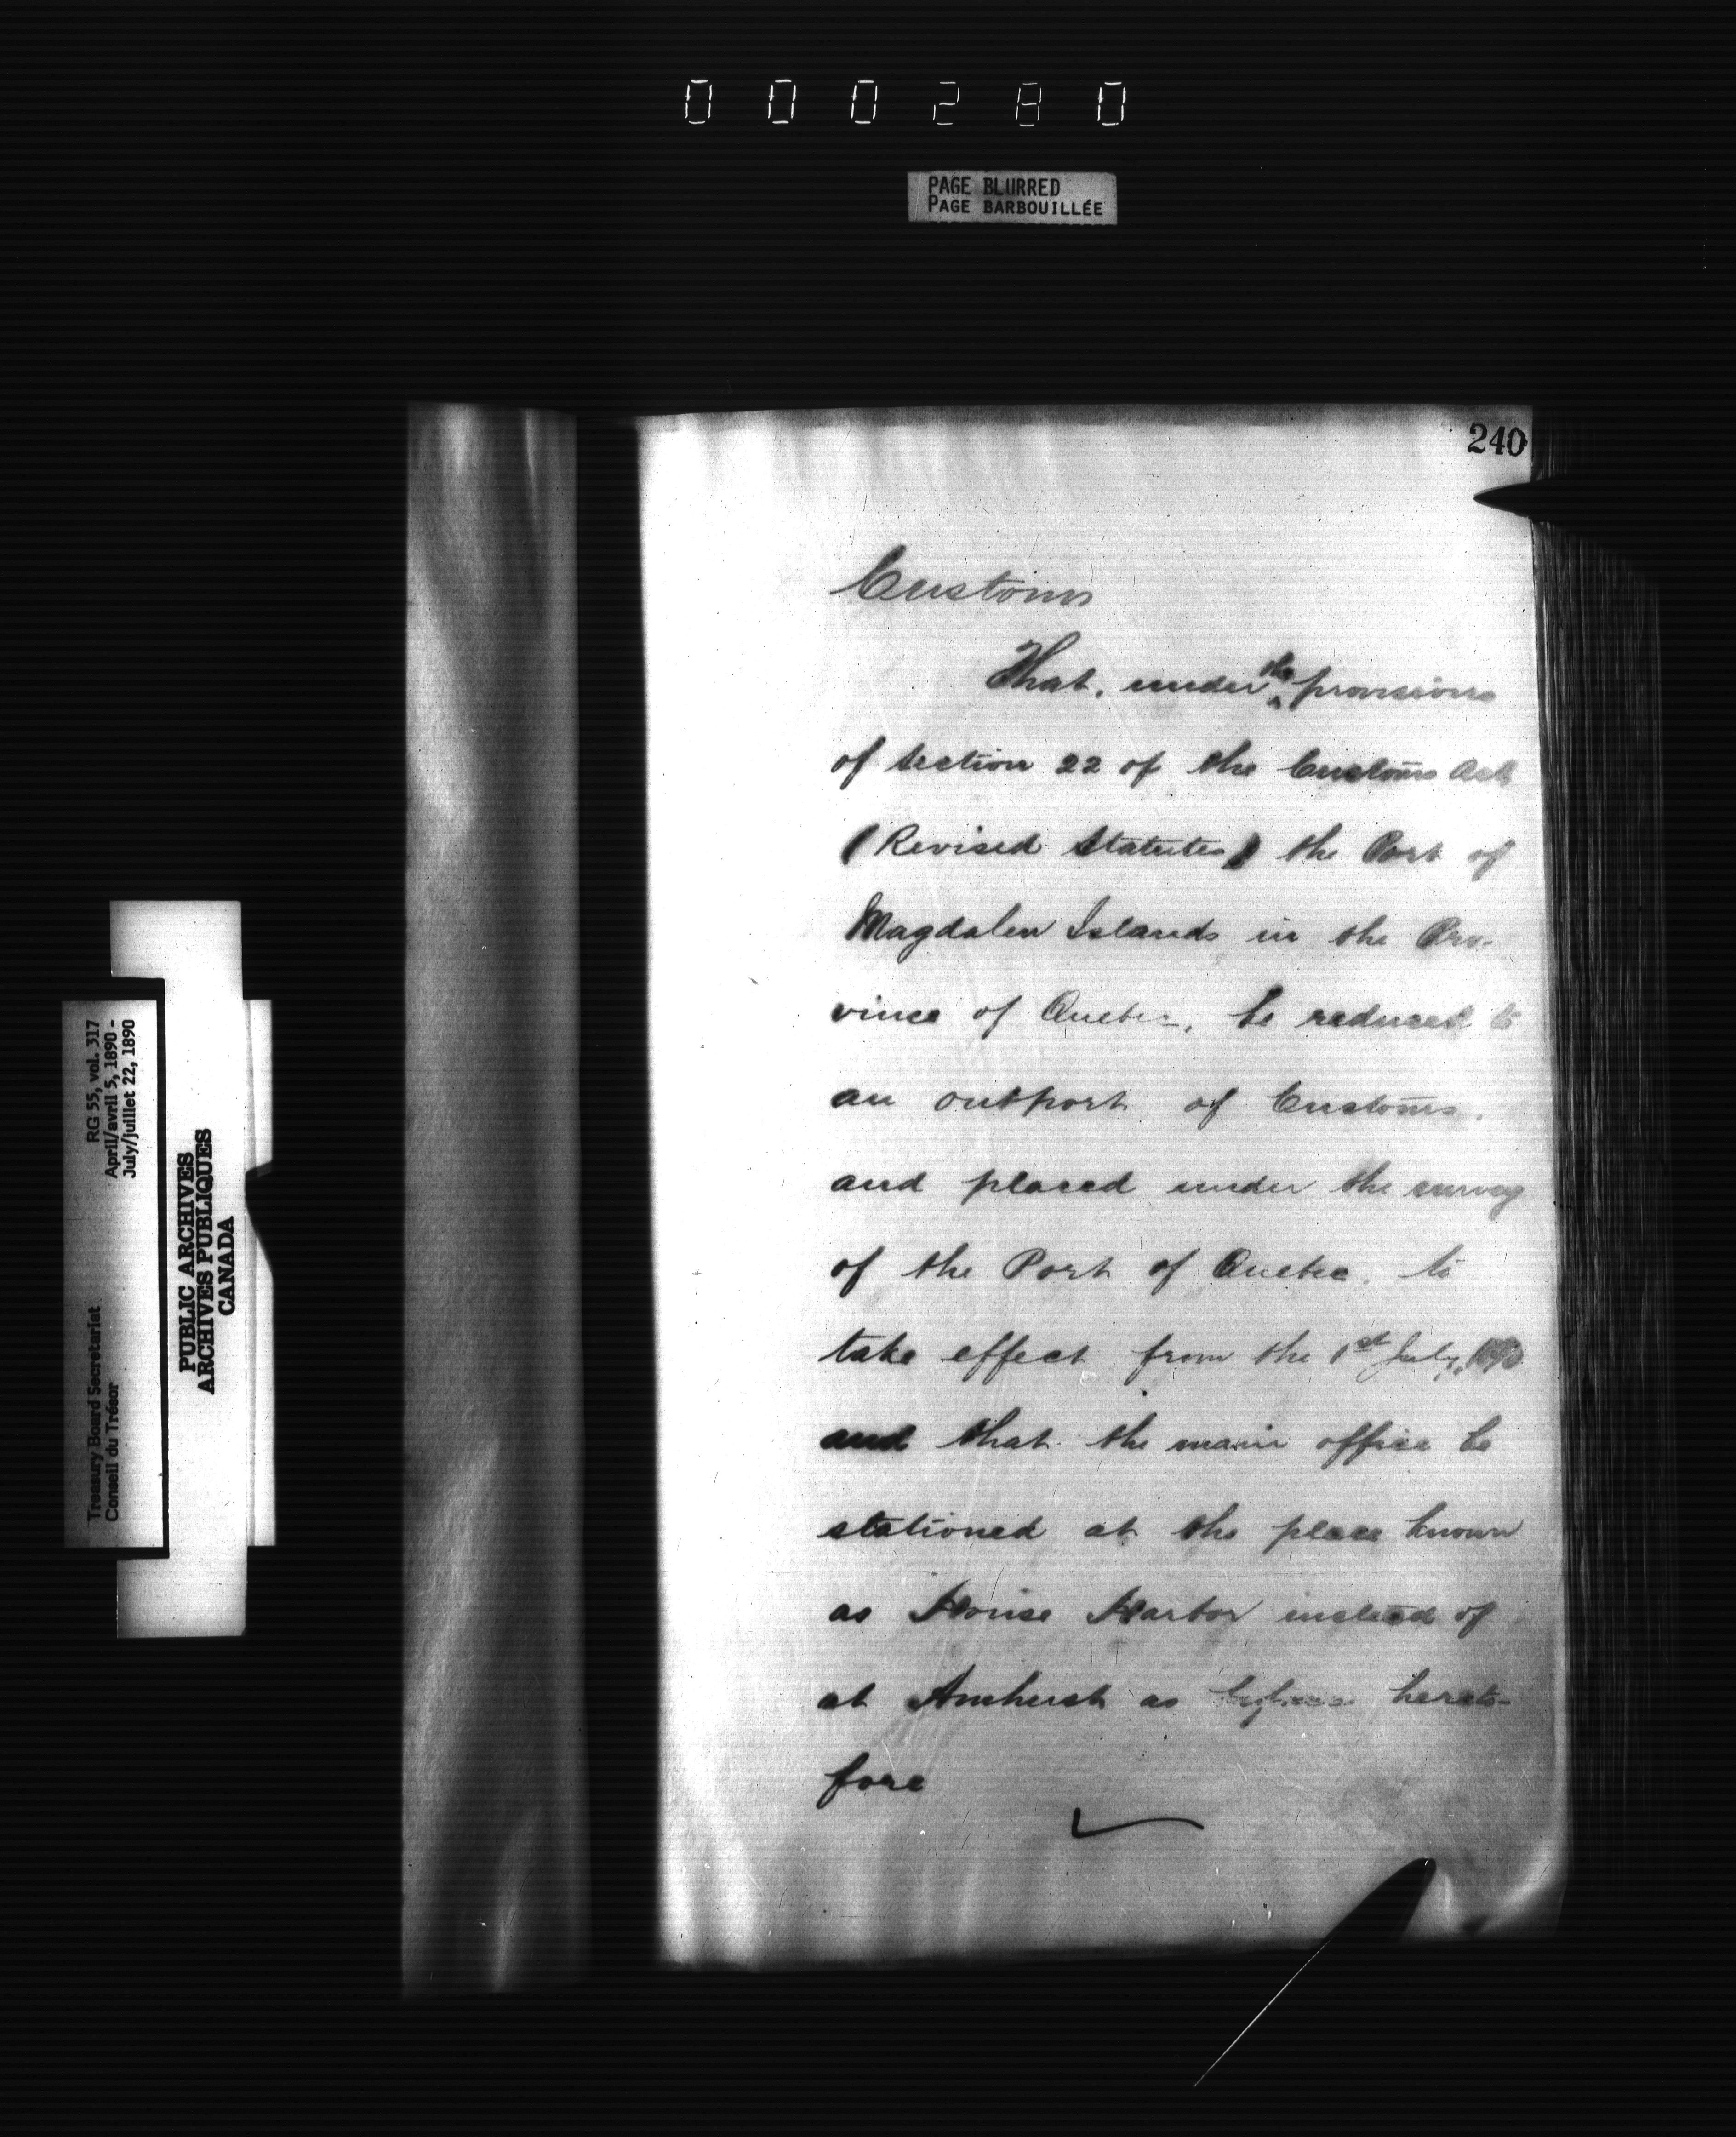 000280
PAGE BLURRED
PAGE BARBOUILLÉE
240
Customs
That, under the provisions
of section 22 of the Customs Act
(Revised Statutes) the Port of
Magdalen Islands in the Pro-
vince of Quebec, be reduced to
an outport of Customs,
and placed under the survey
of the Port of Quebec, to
take effect from the 1st July, 1890
and that the main office be
stationed at the place known
as House Harbor instead of
at Amherst as hereto-
fore
RG 55, vol. 317
April/avril 5, 1890 -
July/juillet 22, 1890
Treasury Board Secretariat
Conseil du Trésor
PUBLIC ARCHIVES
ARCHIVES PUBLIQUES
CANADA